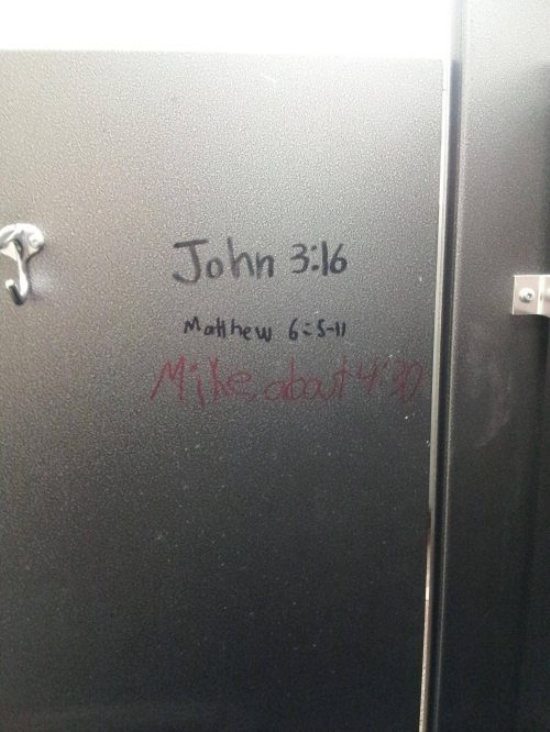 John 3:16
Matthew 6:5-11
Mike, about 4:30